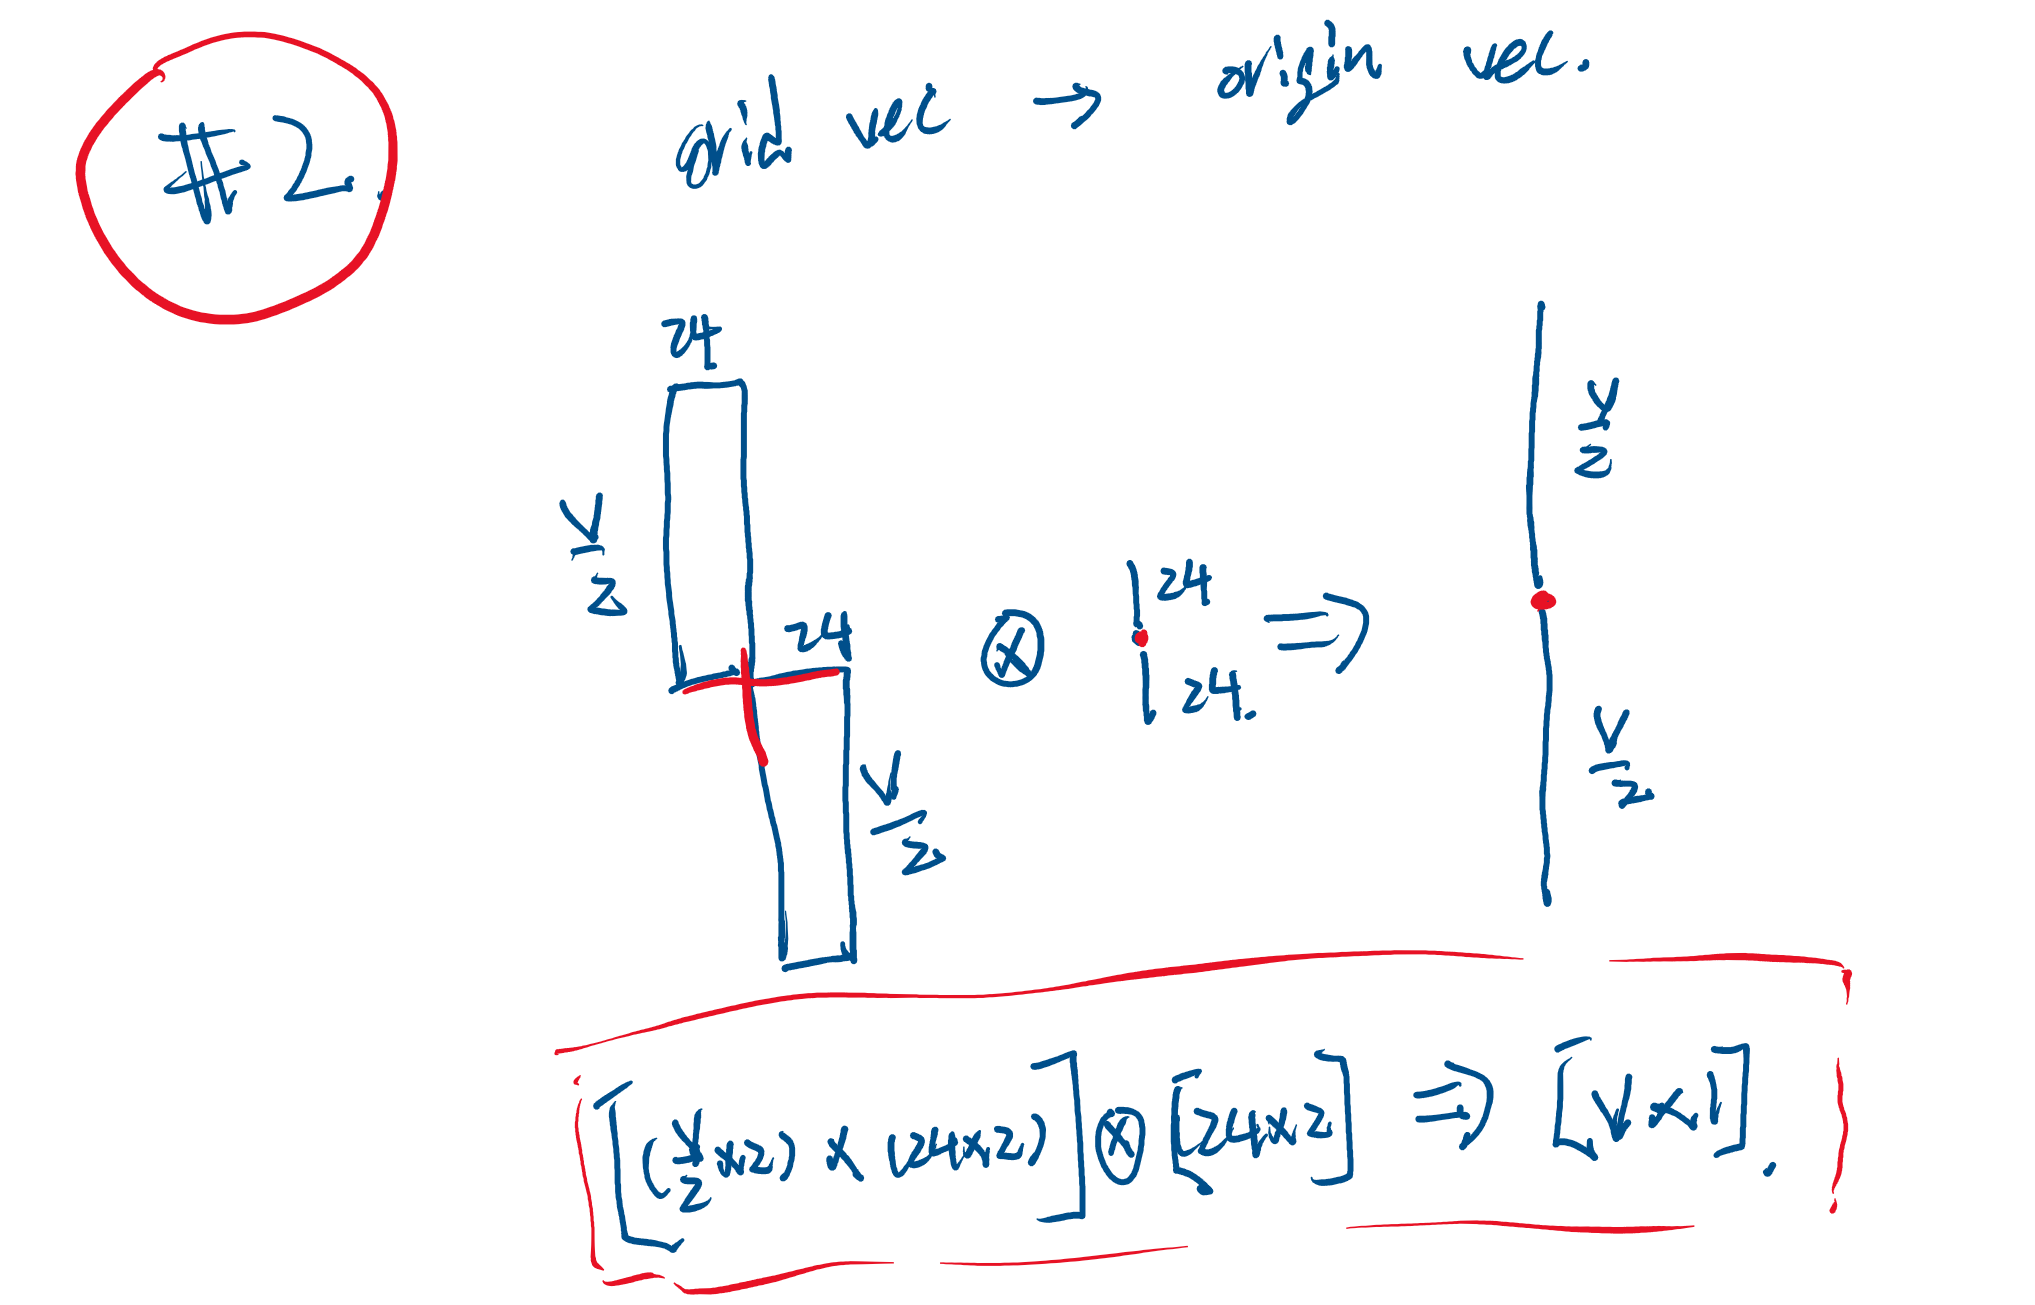 #2.
grid vec → origin vec.
24
V/2
24
V/2
⊗
24
24.
⇒
V/2
V/2
[(V/2 x2) x (24x2)] ⊗ [24x2] ⇒ [Vx1].